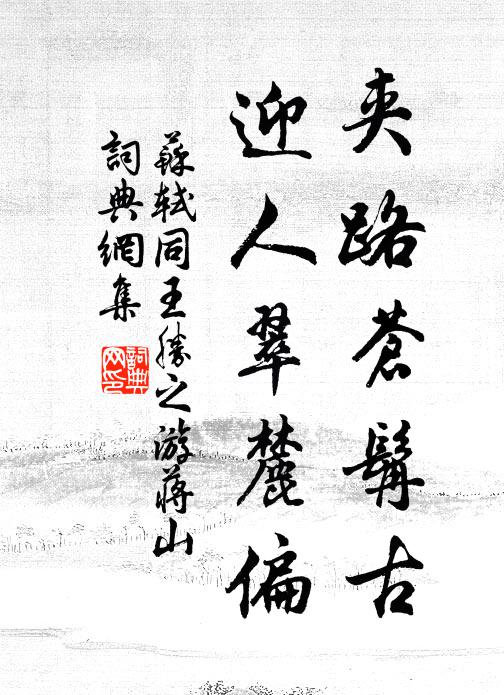 夾路蒼髯古
迎人翠麓偏
蘇軾同王勝之游蔣山
詞典網集
詞典网印